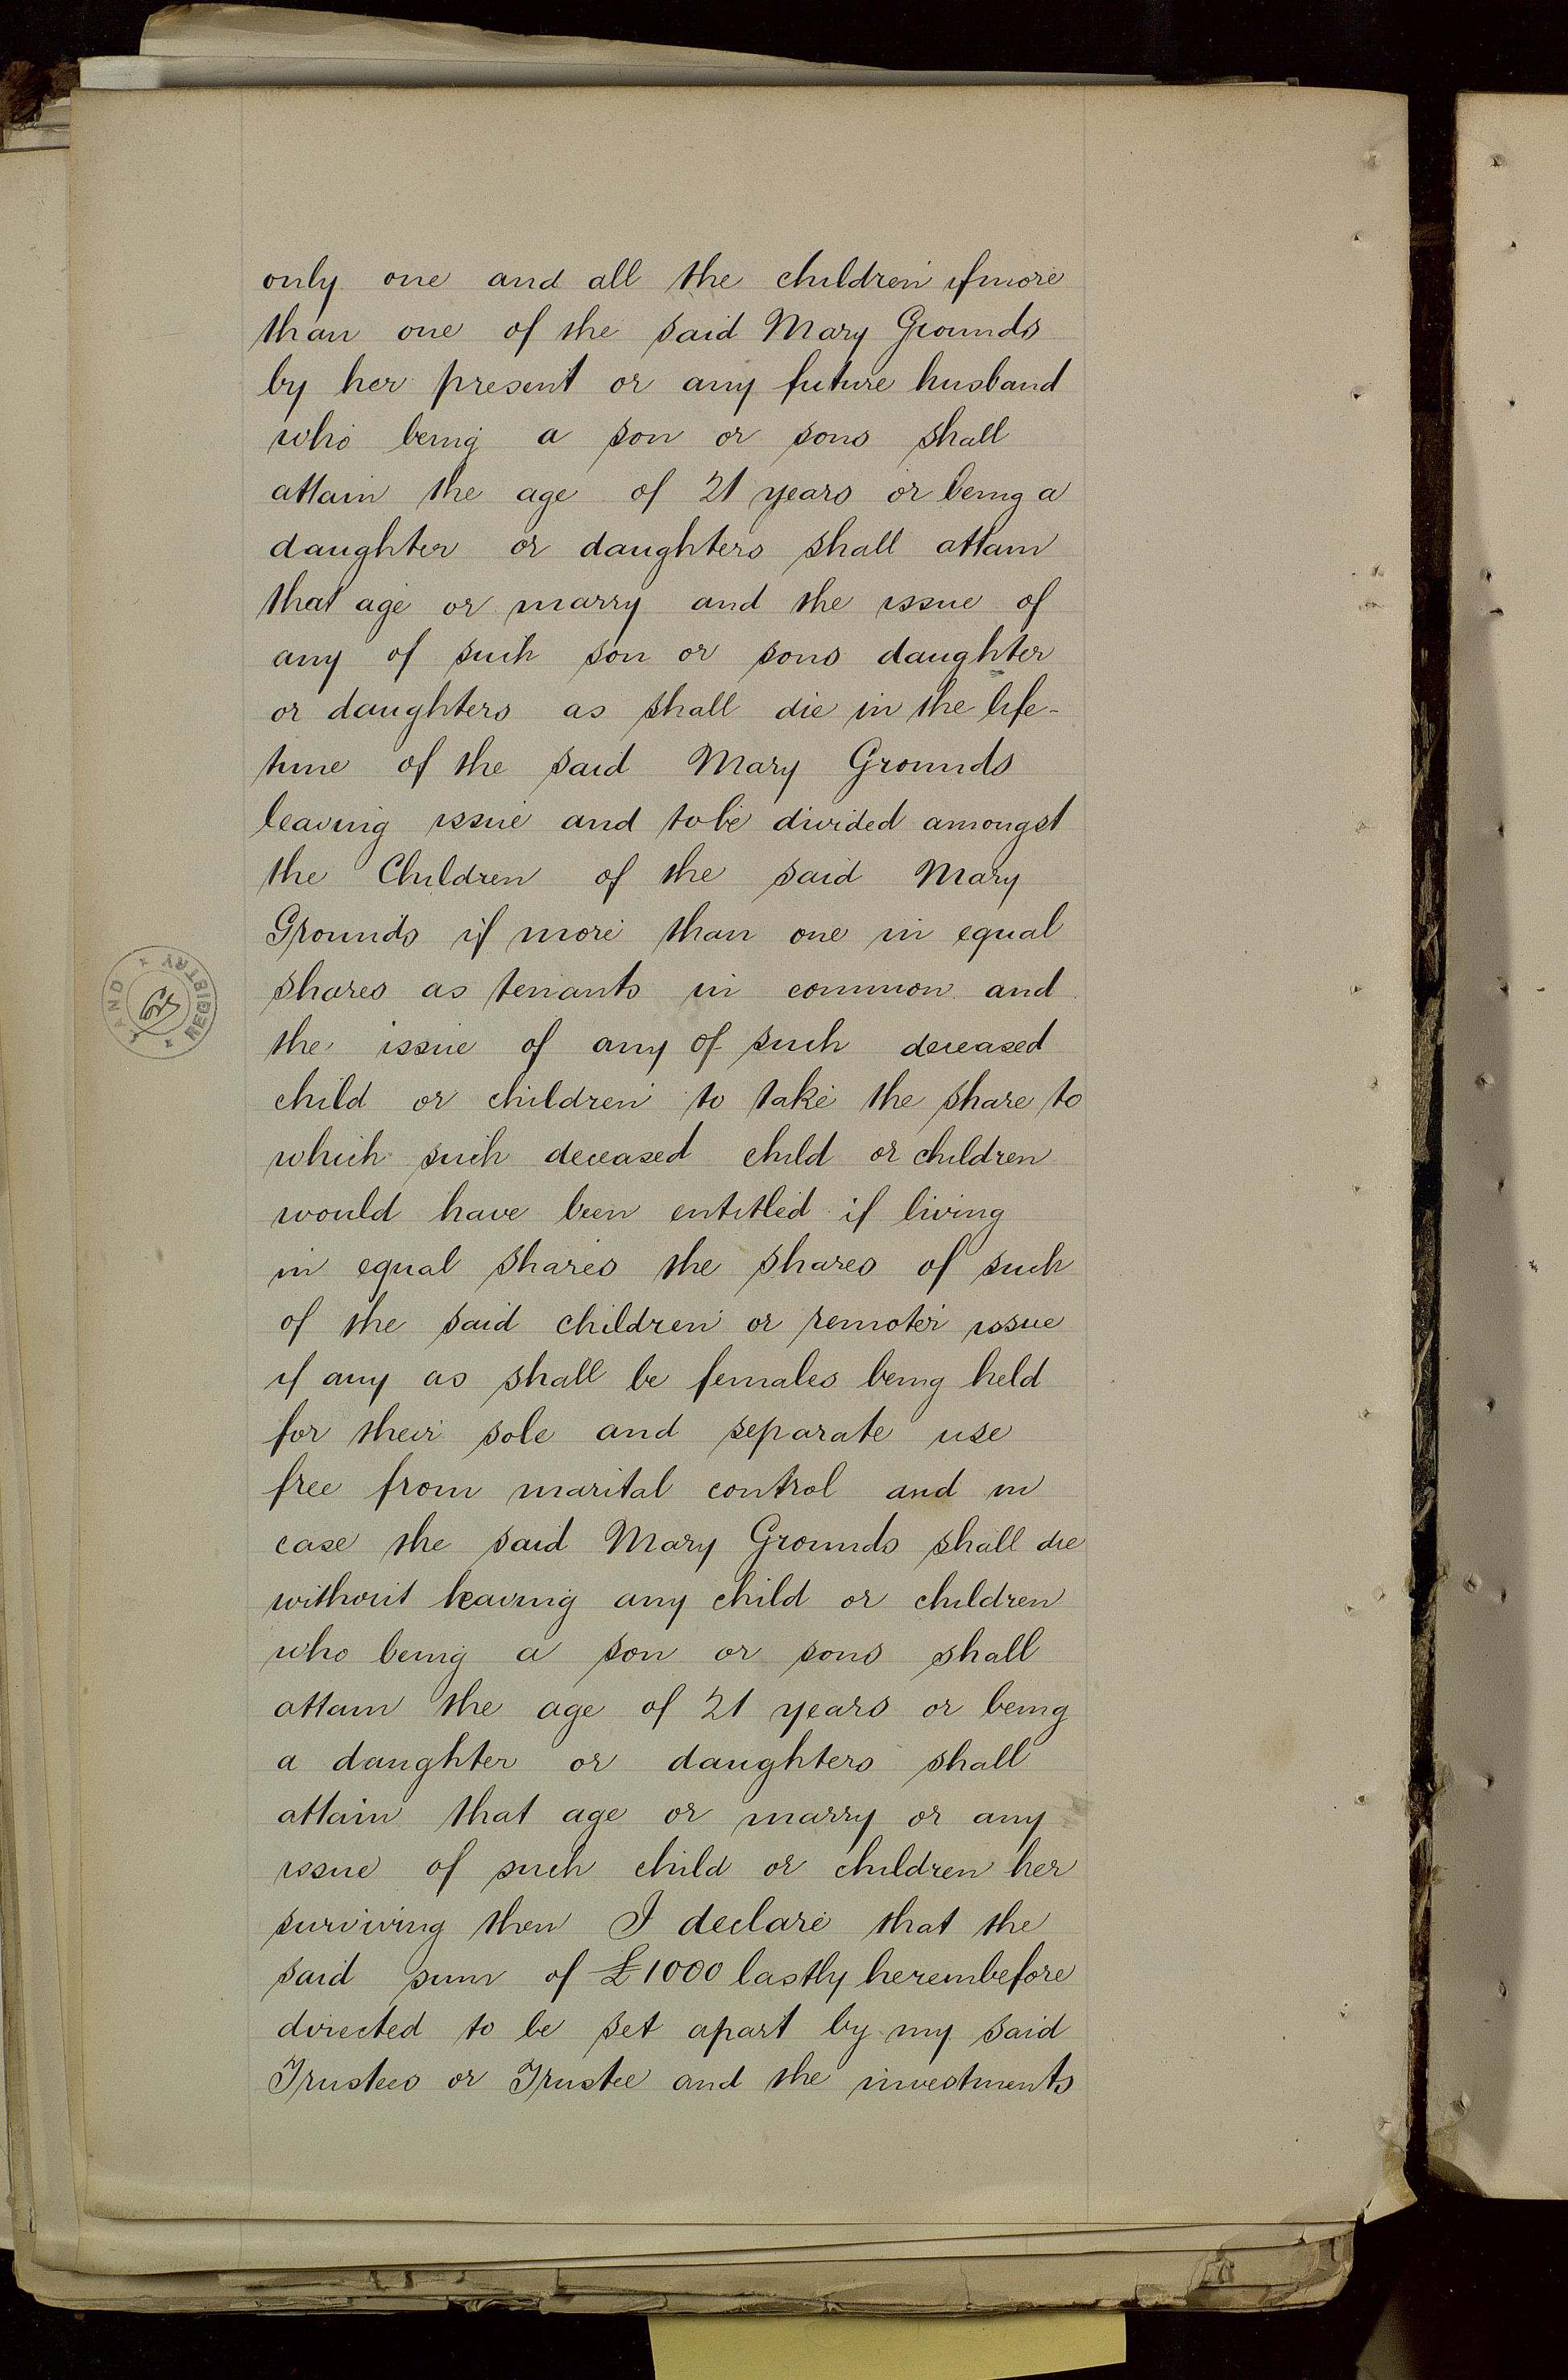 only one and all the children if more
than one of the said Mary Grounds
by her present or any future husband
who being a son or sons shall
attain the age of 21 years or being a
daughter or daughters shall attain
that age or marry and the issue of
any of such son or sons daughter
or daughters as shall die in the life-
time of the said Mary Grounds
leaving issue and to be divided amongst
the Children of the said Mary
Grounds if more than one in equal
shares as tenants in common and
the issue of any of such deceased
child or children to take the share to
which such deceased child or children
would have been entitled if living
in equal shares the shares of such
of the said children or remoter issue
if any as shall be females being held
for their sole and separate use
free from marital control and in
case the said Mary Grounds shall die
without leaving any child or children
who being a son or sons shall
attain the age of 21 years or being
a daughter or daughters shall
attain that age or marry or any
issue of such child or children her
surviving then I declare that the
said sum of £1000 lastly hereinbefore
directed to be set apart by my said
Trustees or Trustee and the investments
LAND REGISTRY